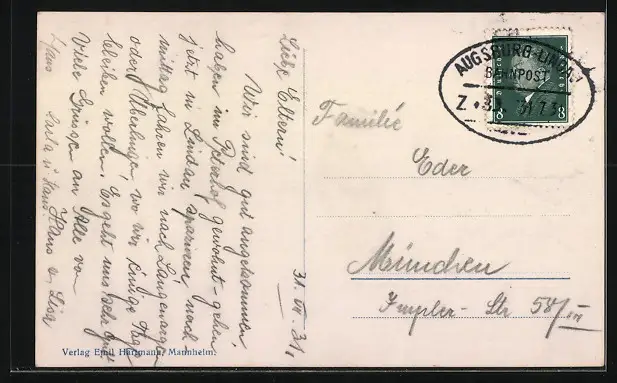 31. VII. 31.
Liebe Eltern!
Wir sind gut angekommen,
haben im Peterhof gewohnt, gehen
jetzt in Lindau spazieren, nach-
mittag fahren wir nach Langenargen
oder Überlingen, wo wir einige Tage
bleiben wollen. Es geht uns sehr gut
Viele Grüsse an Alle von
Hans u. Lisa
Familie
Eder
München
Impler-Str 58/III
AUGSBURG-LINDAU
BAHNPOST
Z. 31.7.31
8 8
Verlag Emil Hartmann, Mannheim.